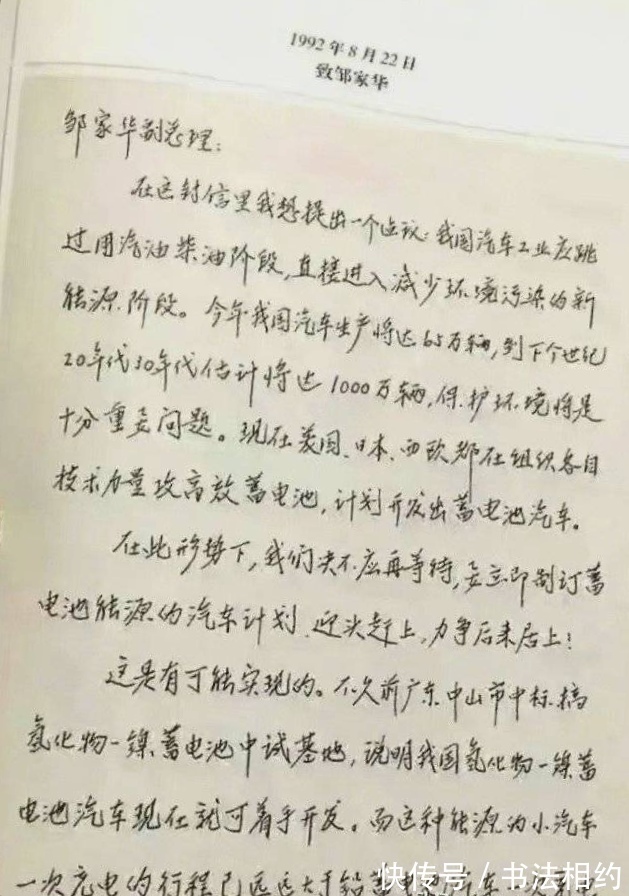 1992年8月22日
致邹家华
邹家华副总理:
在这封信里我想提出一个建议:我国汽车工业应跳
过用汽油柴油阶段,直接进入减少环境污染的新
能源阶段。今年我国汽车生产将达65万辆,到下个世纪
20年代30年代估计将达1000万辆,保护环境将是
十分重要问题。现在美国、日本、西欧都在组织各自
技术力量攻高效蓄电池,计划开发出蓄电池汽车。
在此形势下,我们决不应再等待,要立即制订蓄
电池能源的汽车计划,迎头赶上,力争后来居上!
这是有可能实现的。不久前广东中山市中标搞
氢化物-镍蓄电池中试基地,说明我国氢化物-镍蓄
电池汽车现在就可着手开发。而这种能源为小汽车
一次充电的行程已远远大于铅蓄
快传号/书法相约